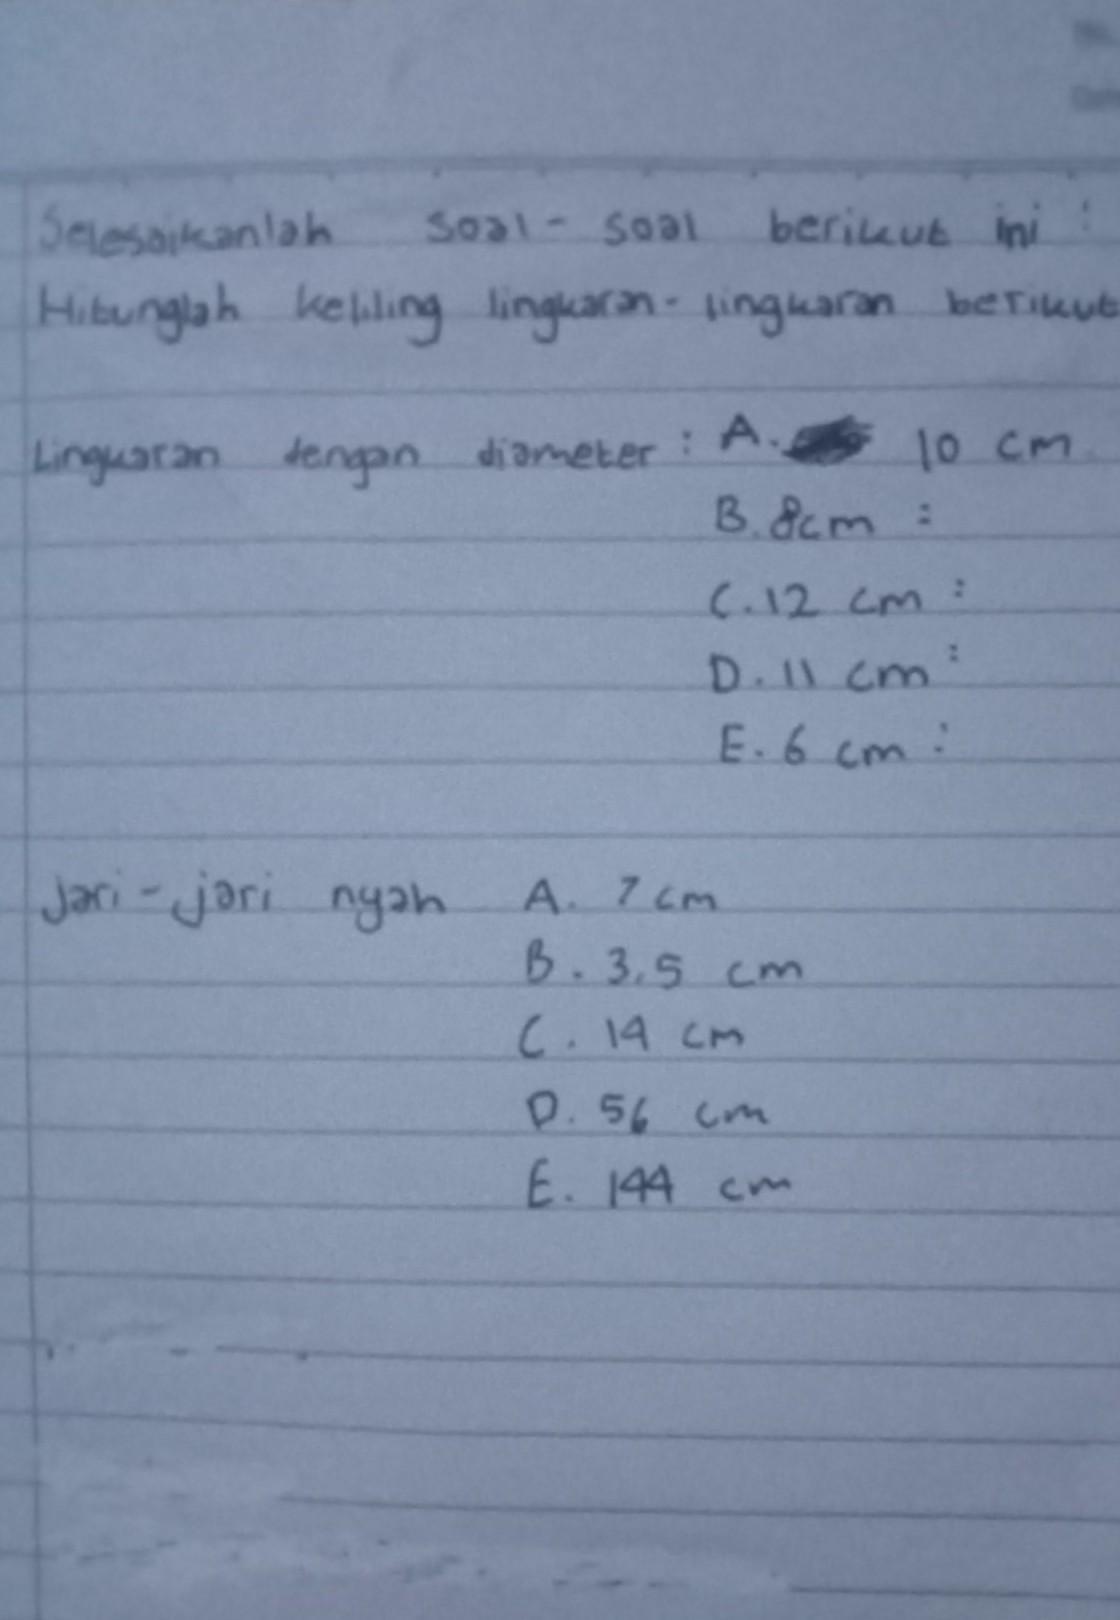 Selesaikanlah soal - soal berikut ini :
Hitunglah keliling lingkaran - lingkaran berikut
Lingkaran dengan diameter : A. 10 cm
B. 8cm :
C. 12 cm :
D. 11 cm :
E. 6 cm :
Jari - jari nyah A. 7 cm
B. 3,5 cm
C. 14 cm
D. 56 cm
E. 144 cm